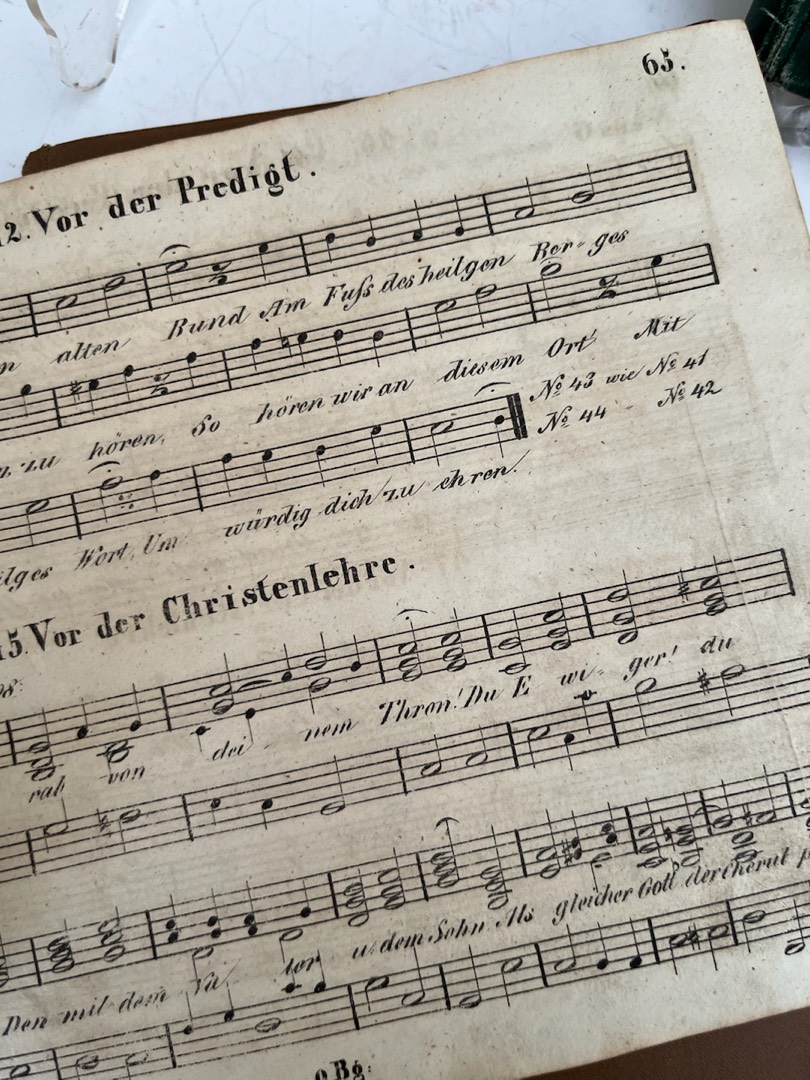 65.
12. Vor der Predigt.
n alten Bund Am Fuſs des heilgen Ber-ges
z zu hören, So hören wir an diesem Ort Mit
No 43 wie No 41
No 44 No 42
ilges Wort, Um würdig dich zu ehren.
15. Vor der Christenlehre.
rab von dei - nem Thron! Du E wi - ger! du
Den mit dem Va ter u. dem Sohn Als gleicher Gott der
o Bg: